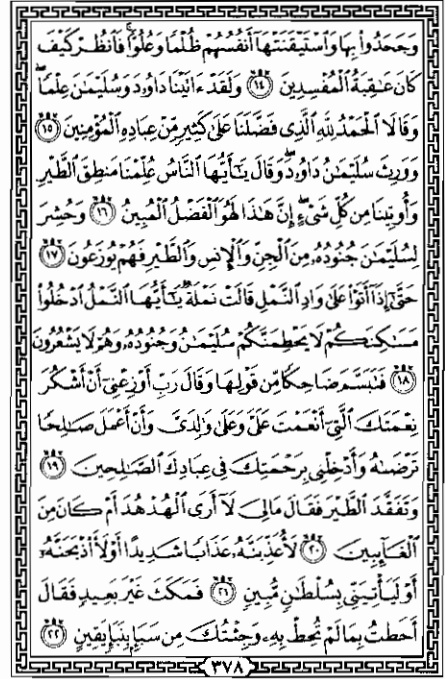 وَجَحَدُوا۟ بِهَا وَٱسْتَيْقَنَتْهَآ أَنفُسُهُمْ ظُلْمًا وَعُلُوًّا ۚ فَٱنظُرْ كَيْفَ
كَانَ عَٰقِبَةُ ٱلْمُفْسِدِينَ ١٤ وَلَقَدْ ءَاتَيْنَا دَاوُۥدَ وَسُلَيْمَٰنَ عِلْمًا ۖ
وَقَالَا ٱلْحَمْدُ لِلَّهِ ٱلَّذِى فَضَّلَنَا عَلَىٰ كَثِيرٍ مِّنْ عِبَادِهِ ٱلْمُؤْمِنِينَ ١٥
وَوَرِثَ سُلَيْمَٰنُ دَاوُۥدَ ۖ وَقَالَ يَٰٓأَيُّهَا ٱلنَّاسُ عُلِّمْنَا مَنطِقَ ٱلطَّيْرِ
وَأُوتِينَا مِن كُلِّ شَىْءٍ ۖ إِنَّ هَٰذَا لَهُوَ ٱلْفَضْلُ ٱلْمُبِينُ ١٦ وَحُشِرَ
لِسُلَيْمَٰنَ جُنُودُهُۥ مِنَ ٱلْجِنِّ وَٱلْإِنسِ وَٱلطَّيْرِ فَهُمْ يُوزَعُونَ ١٧
حَتَّىٰٓ إِذَآ أَتَوْا۟ عَلَىٰ وَادِ ٱلنَّمْلِ قَالَتْ نَمْلَةٌ يَٰٓأَيُّهَا ٱلنَّمْلُ ٱدْخُلُوا۟
مَسَٰكِنَكُمْ لَا يَحْطِمَنَّكُمْ سُلَيْمَٰنُ وَجُنُودُهُۥ وَهُمْ لَا يَشْعُرُونَ
١٨ فَتَبَسَّمَ ضَاحِكًا مِّن قَوْلِهَا وَقَالَ رَبِّ أَوْزِعْنِىٓ أَنْ أَشْكُرَ
نِعْمَتَكَ ٱلَّتِىٓ أَنْعَمْتَ عَلَىَّ وَعَلَىٰ وَٰلِدَىَّ وَأَنْ أَعْمَلَ صَٰلِحًا
تَرْضَىٰهُ وَأَدْخِلْنِى بِرَحْمَتِكَ فِى عِبَادِكَ ٱلصَّٰلِحِينَ ١٩
وَتَفَقَّدَ ٱلطَّيْرَ فَقَالَ مَا لِىَ لَآ أَرَى ٱلْهُدْهُدَ أَمْ كَانَ مِنَ
ٱلْغَآئِبِينَ ٢٠ لَأُعَذِّبَنَّهُۥ عَذَابًا شَدِيدًا أَوْ لَأَا۟ذْبَحَنَّهُۥٓ
أَوْ لَيَأْتِيَنِّى بِسُلْطَٰنٍ مُّبِينٍ ٢١ فَمَكَثَ غَيْرَ بَعِيدٍ فَقَالَ
أَحَطتُ بِمَا لَمْ تُحِطْ بِهِۦ وَجِئْتُكَ مِن سَبَإٍۭ بِنَبَإٍ يَقِينٍ ٢٢
٣٧٨